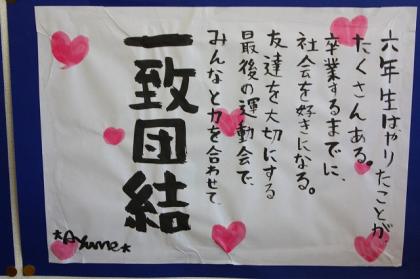 六年生はやりたことが
たくさんある。
卒業するまでに、
社会を好きになる。
友達を大切にする
最後の運動会で、
みんなと力を合わせて
一致団結
*AYume*